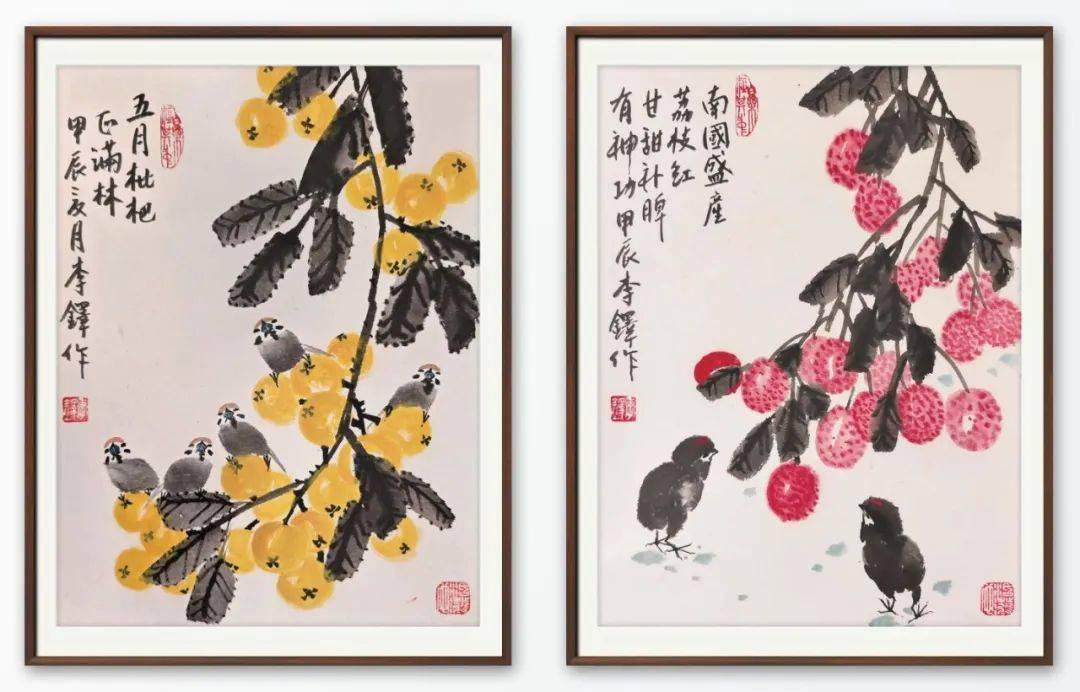 五月枇杷
正滿林
甲辰夏月李鐸作
南國盛産
荔枝红
甘甜补脾
有神功甲辰李鐸作